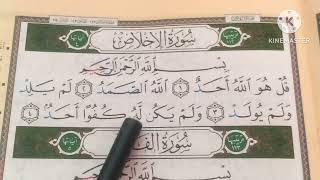 سُورَةُ الْإِخْلَاصِ
KINEMASTER
بِسْمِ اللَّهِ الرَّحْمَٰنِ الرَّحِيمِ
قُلْ هُوَ اللَّهُ أَحَدٌ ١ اللَّهُ الصَّمَدُ ٢ لَمْ يَلِدْ
وَلَمْ يُولَدْ ٣ وَلَمْ يَكُن لَّهُ كُفُوًا أَحَدٌ ٤
سُورَةُ
بِسْمِ اللَّهِ